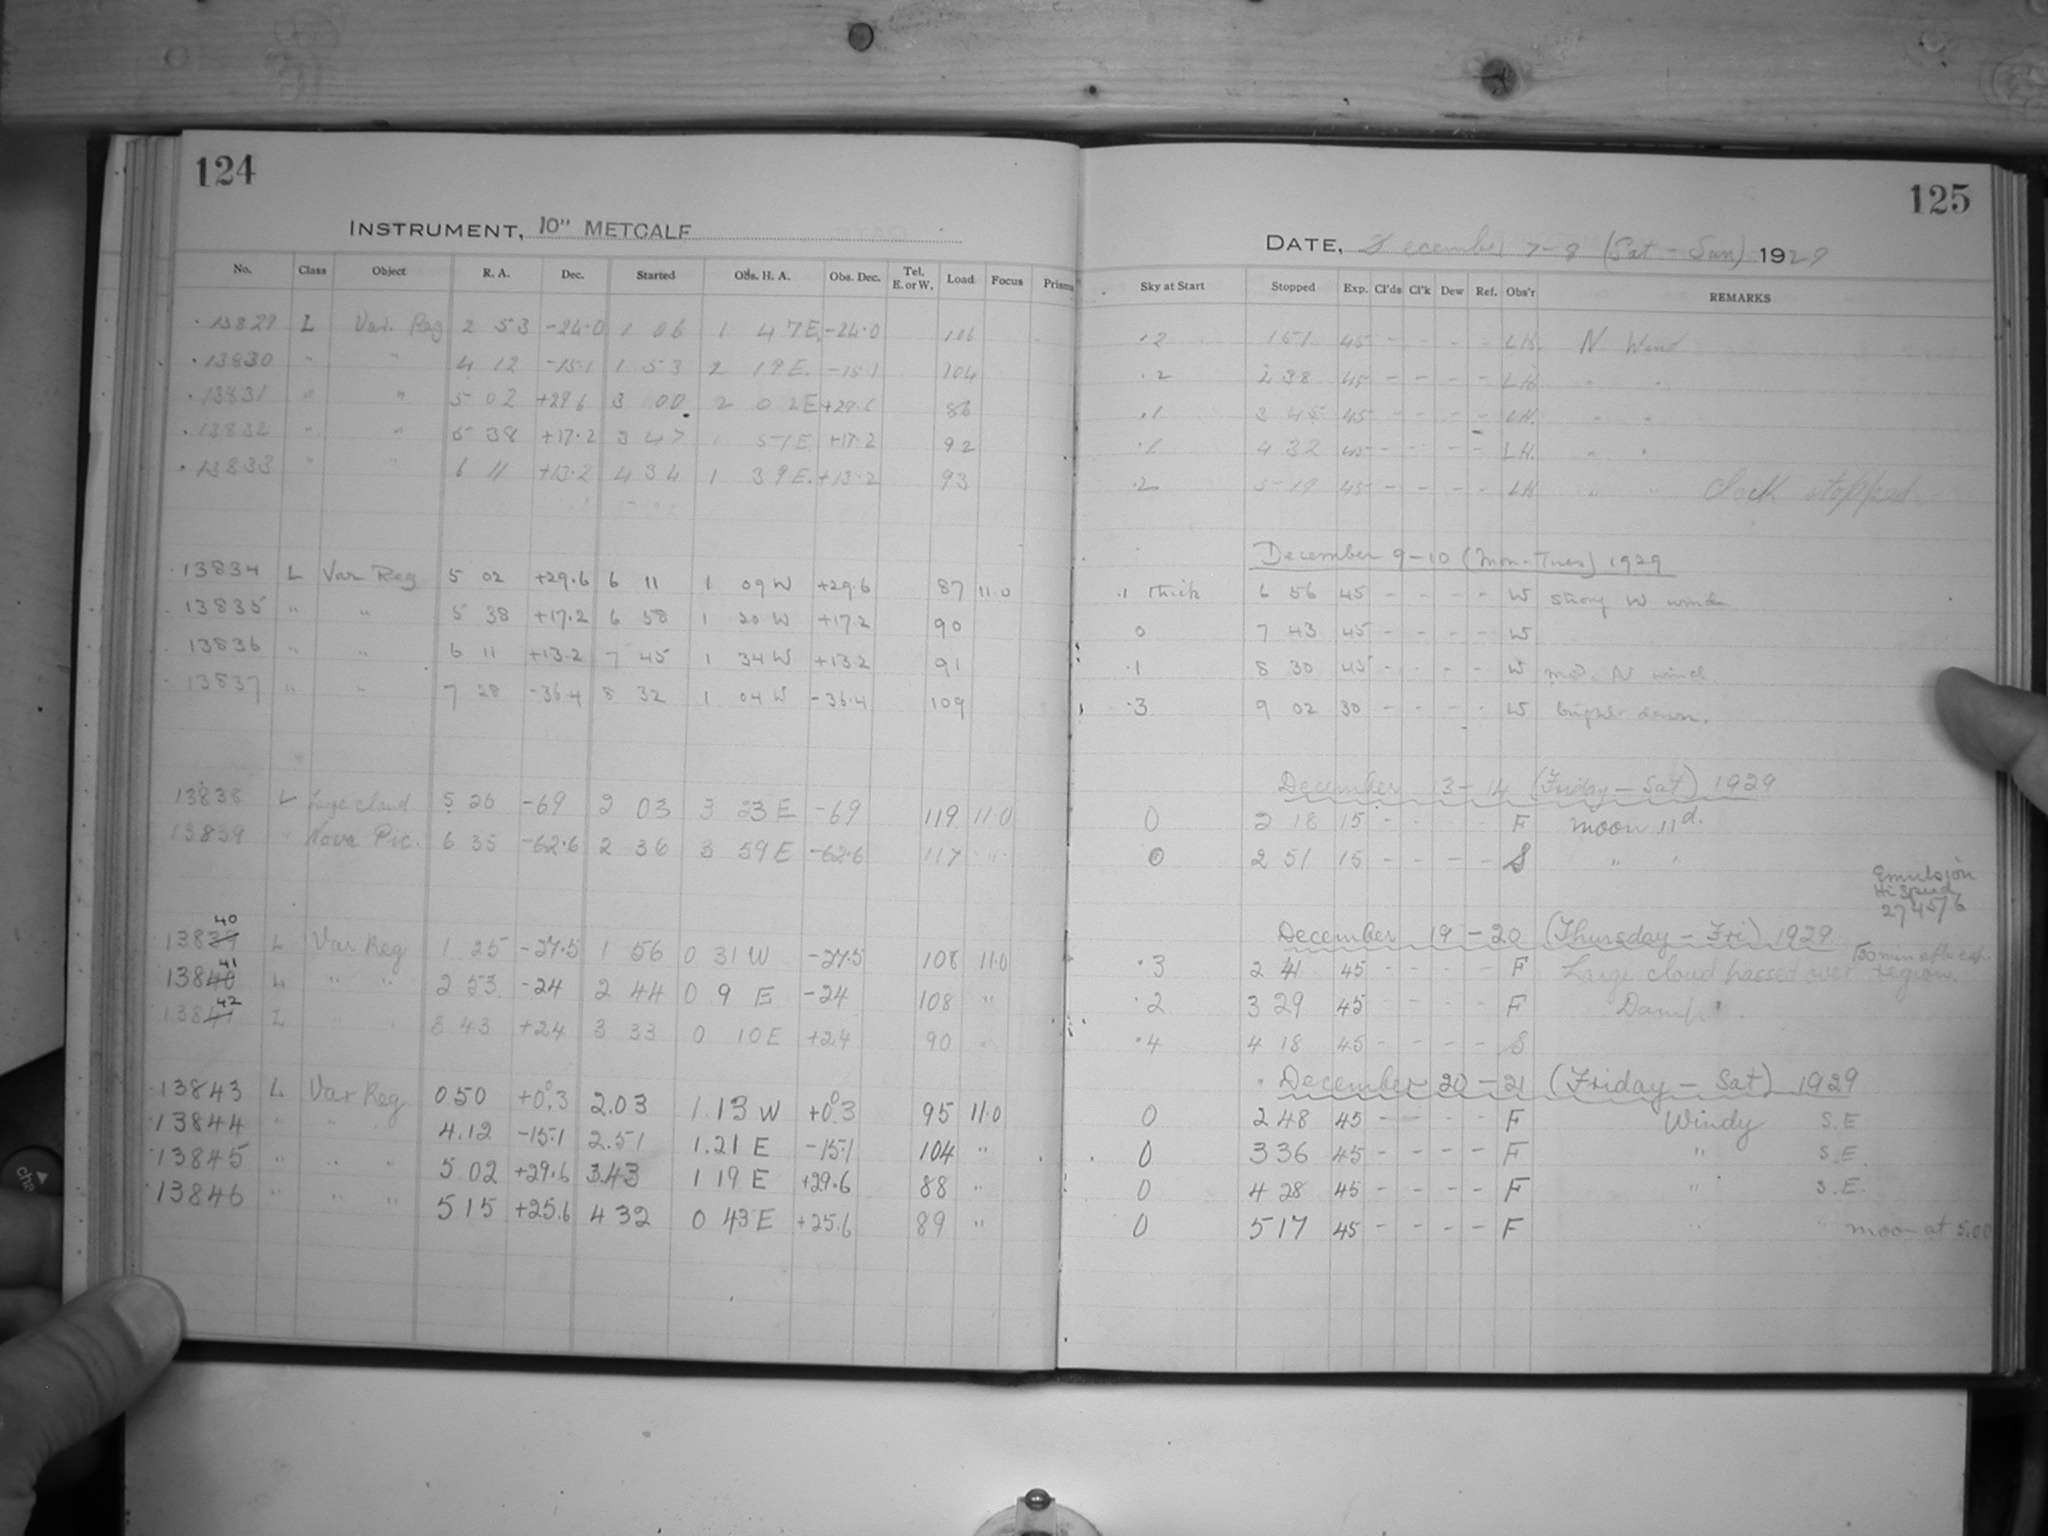 124
INSTRUMENT, 10" METCALF
No. Class Object R. A. Dec. Started Obs. H. A. Obs. Dec. Tel. E. or W. Load Focus Prism
13829 L Var. Reg 2 53 -24.0 1 06 1 47 E -24.0 106
13830 " " 4 12 -15.1 1 53 2 19 E. -15.1 104
13831 " " 5 02 +29.6 3 00 2 02 E +29.6 86
13832 " " 5 38 +17.2 3 47 1 51 E +17.2 92
13833 " " 6 11 +13.2 4 34 1 39 E. +13.2 93
13834 L Var Reg 5 02 +29.6 6 11 1 09 W +29.6 87 11.0
13835 " " 5 38 +17.2 6 58 1 20 W +17.2 90
13836 " " 6 11 +13.2 7 45 1 34 W +13.2 91
13837 " " 7 28 -36.4 8 32 1 04 W -36.4 109
13838 L Large Cloud 5 26 -69 2 03 3 23 E -69 119 11.0
13839 " Nova Pic. 6 35 -62.6 2 36 3 59 E -62.6 117 "
40
13839 L Var Reg 1 25 -27.5 1 56 0 31 W -27.5 108 11.0
41
13840 L " " 2 53 -24 2 44 0 9 E -24 108 "
42
13841 L " " 3 43 +24 3 33 0 10 E +24 90 "
13843 L Var Reg 0 50 +0.3 2.03 1.13 W +0.3 95 11.0
13844 " " " 4.12 -15.1 2.51 1.21 E -15.1 104 "
13845 " " " 5 02 +29.6 3.43 1 19 E +29.6 88 "
13846 " " " 5 15 +25.6 4 32 0 43 E +25.6 89 "
125
DATE, December 7-8 (Sat - Sun) 1929
Sky at Start Stopped Exp. Cl'ds Cl'k Dew Ref. Obs'r REMARKS
.2 1 51 45 - - - - LH. N Wind
.2 2 38 45 - - - - LH " "
.1 3 45 45 - - - - LH. " "
.1 4 32 45 - - - - LH. " "
.2 5 19 45 - - - - LH " " Clock stopped
December 9-10 (Mon-Tues) 1929
.1 thick 6 56 45 - - - - W strong W wind
0 7 43 45 - - - - W
.1 8 30 45 - - - - W mod. N wind
.3 9 02 30 - - - - W bright dawn.
December 13-14 (Friday - Sat) 1929
0 2 18 15 - - - - F Moon 11d.
0 2 51 15 - - - - S " "
Emulsion
Hi Speed
27456
December 19-20 (Thursday - Fri) 1929
.3 2 41 45 - - - - F Large cloud passed over region.
.2 3 29 45 - - - - F Damp
.4 4 18 45 - - - - S
December 20-21 (Friday - Sat) 1929
0 2 48 45 - - - - F Windy S.E
0 3 36 45 - - - - F " S.E.
0 4 28 45 - - - - F " S.E.
0 5 17 45 - - - - F " " moon at 5.00